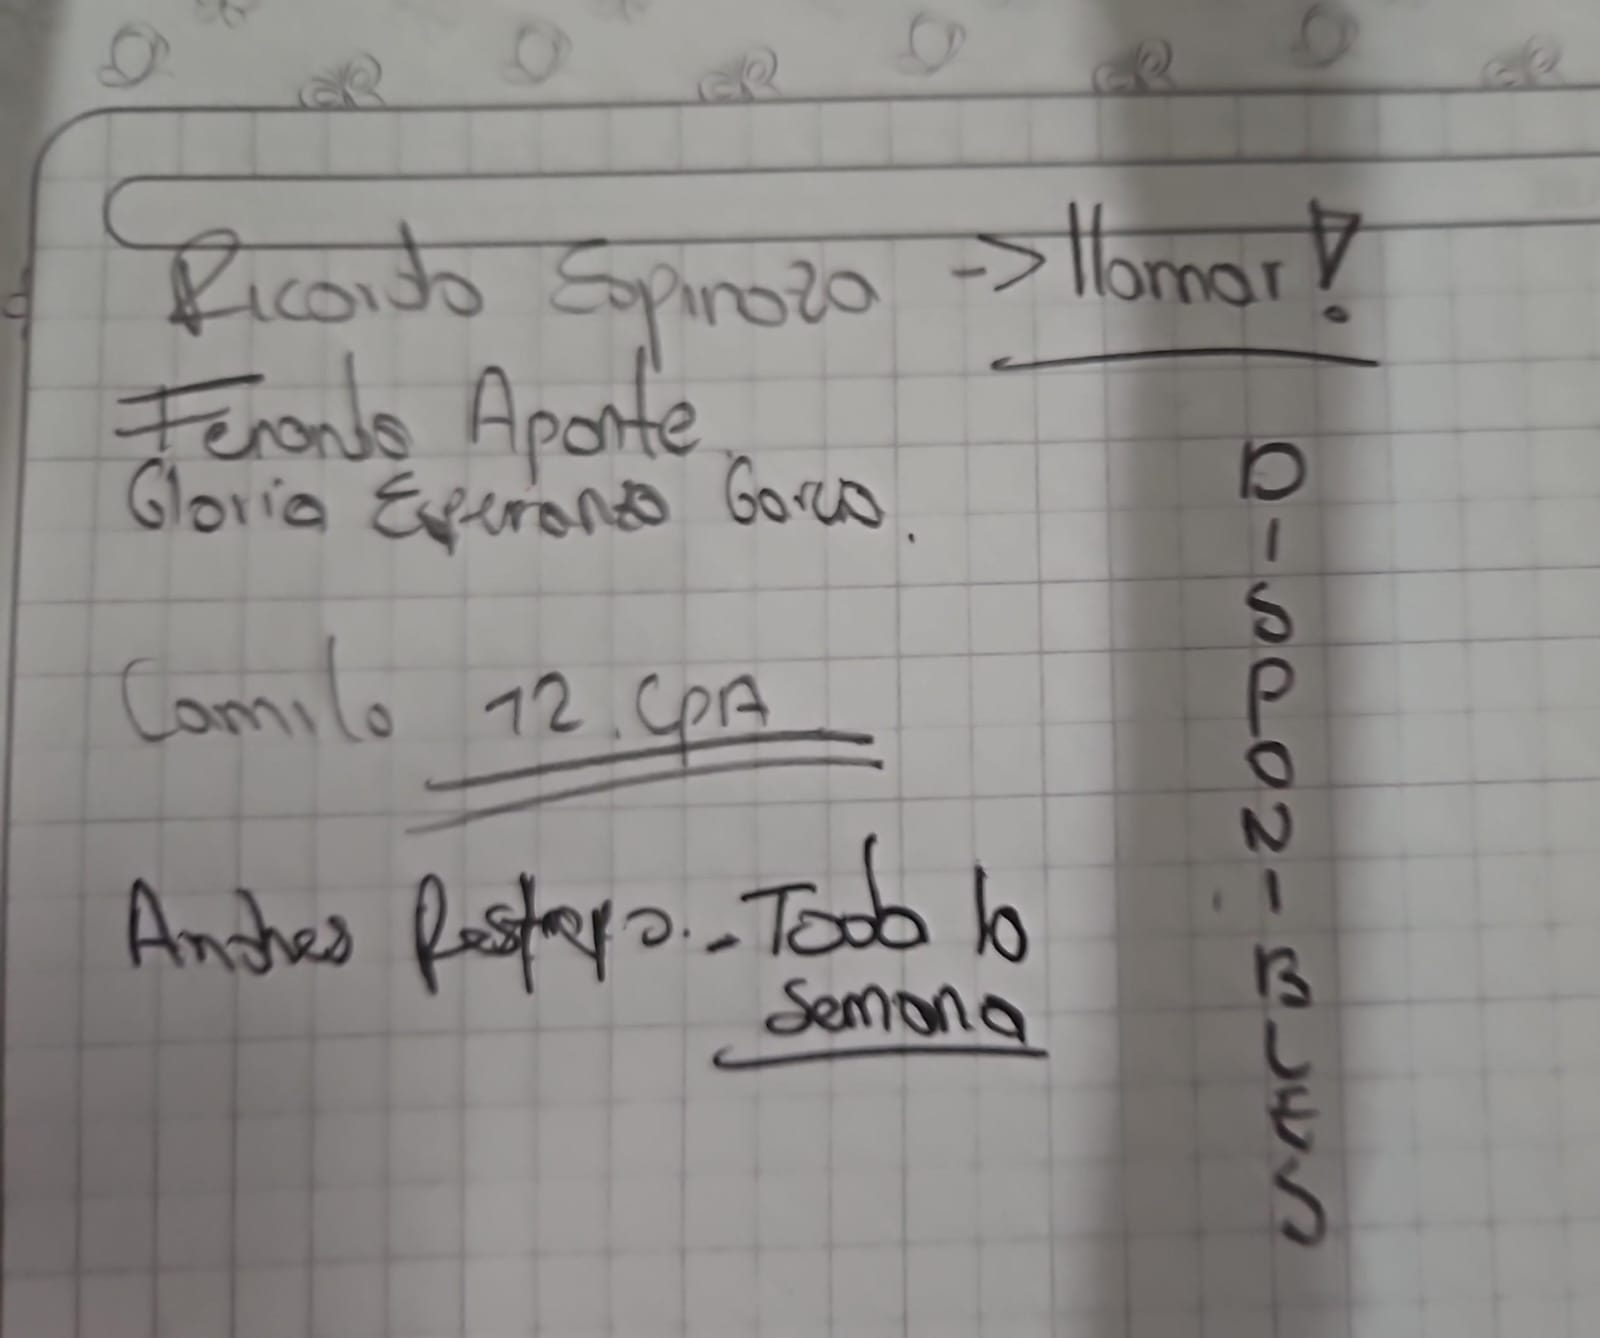 Ricardo Espinoza -> llamar!
Fernando Aponte
Gloria Esperanza Garzo.
Camilo 12. CPA
Andres Restrepo. - Toda la
Semana
DISPONIBLES